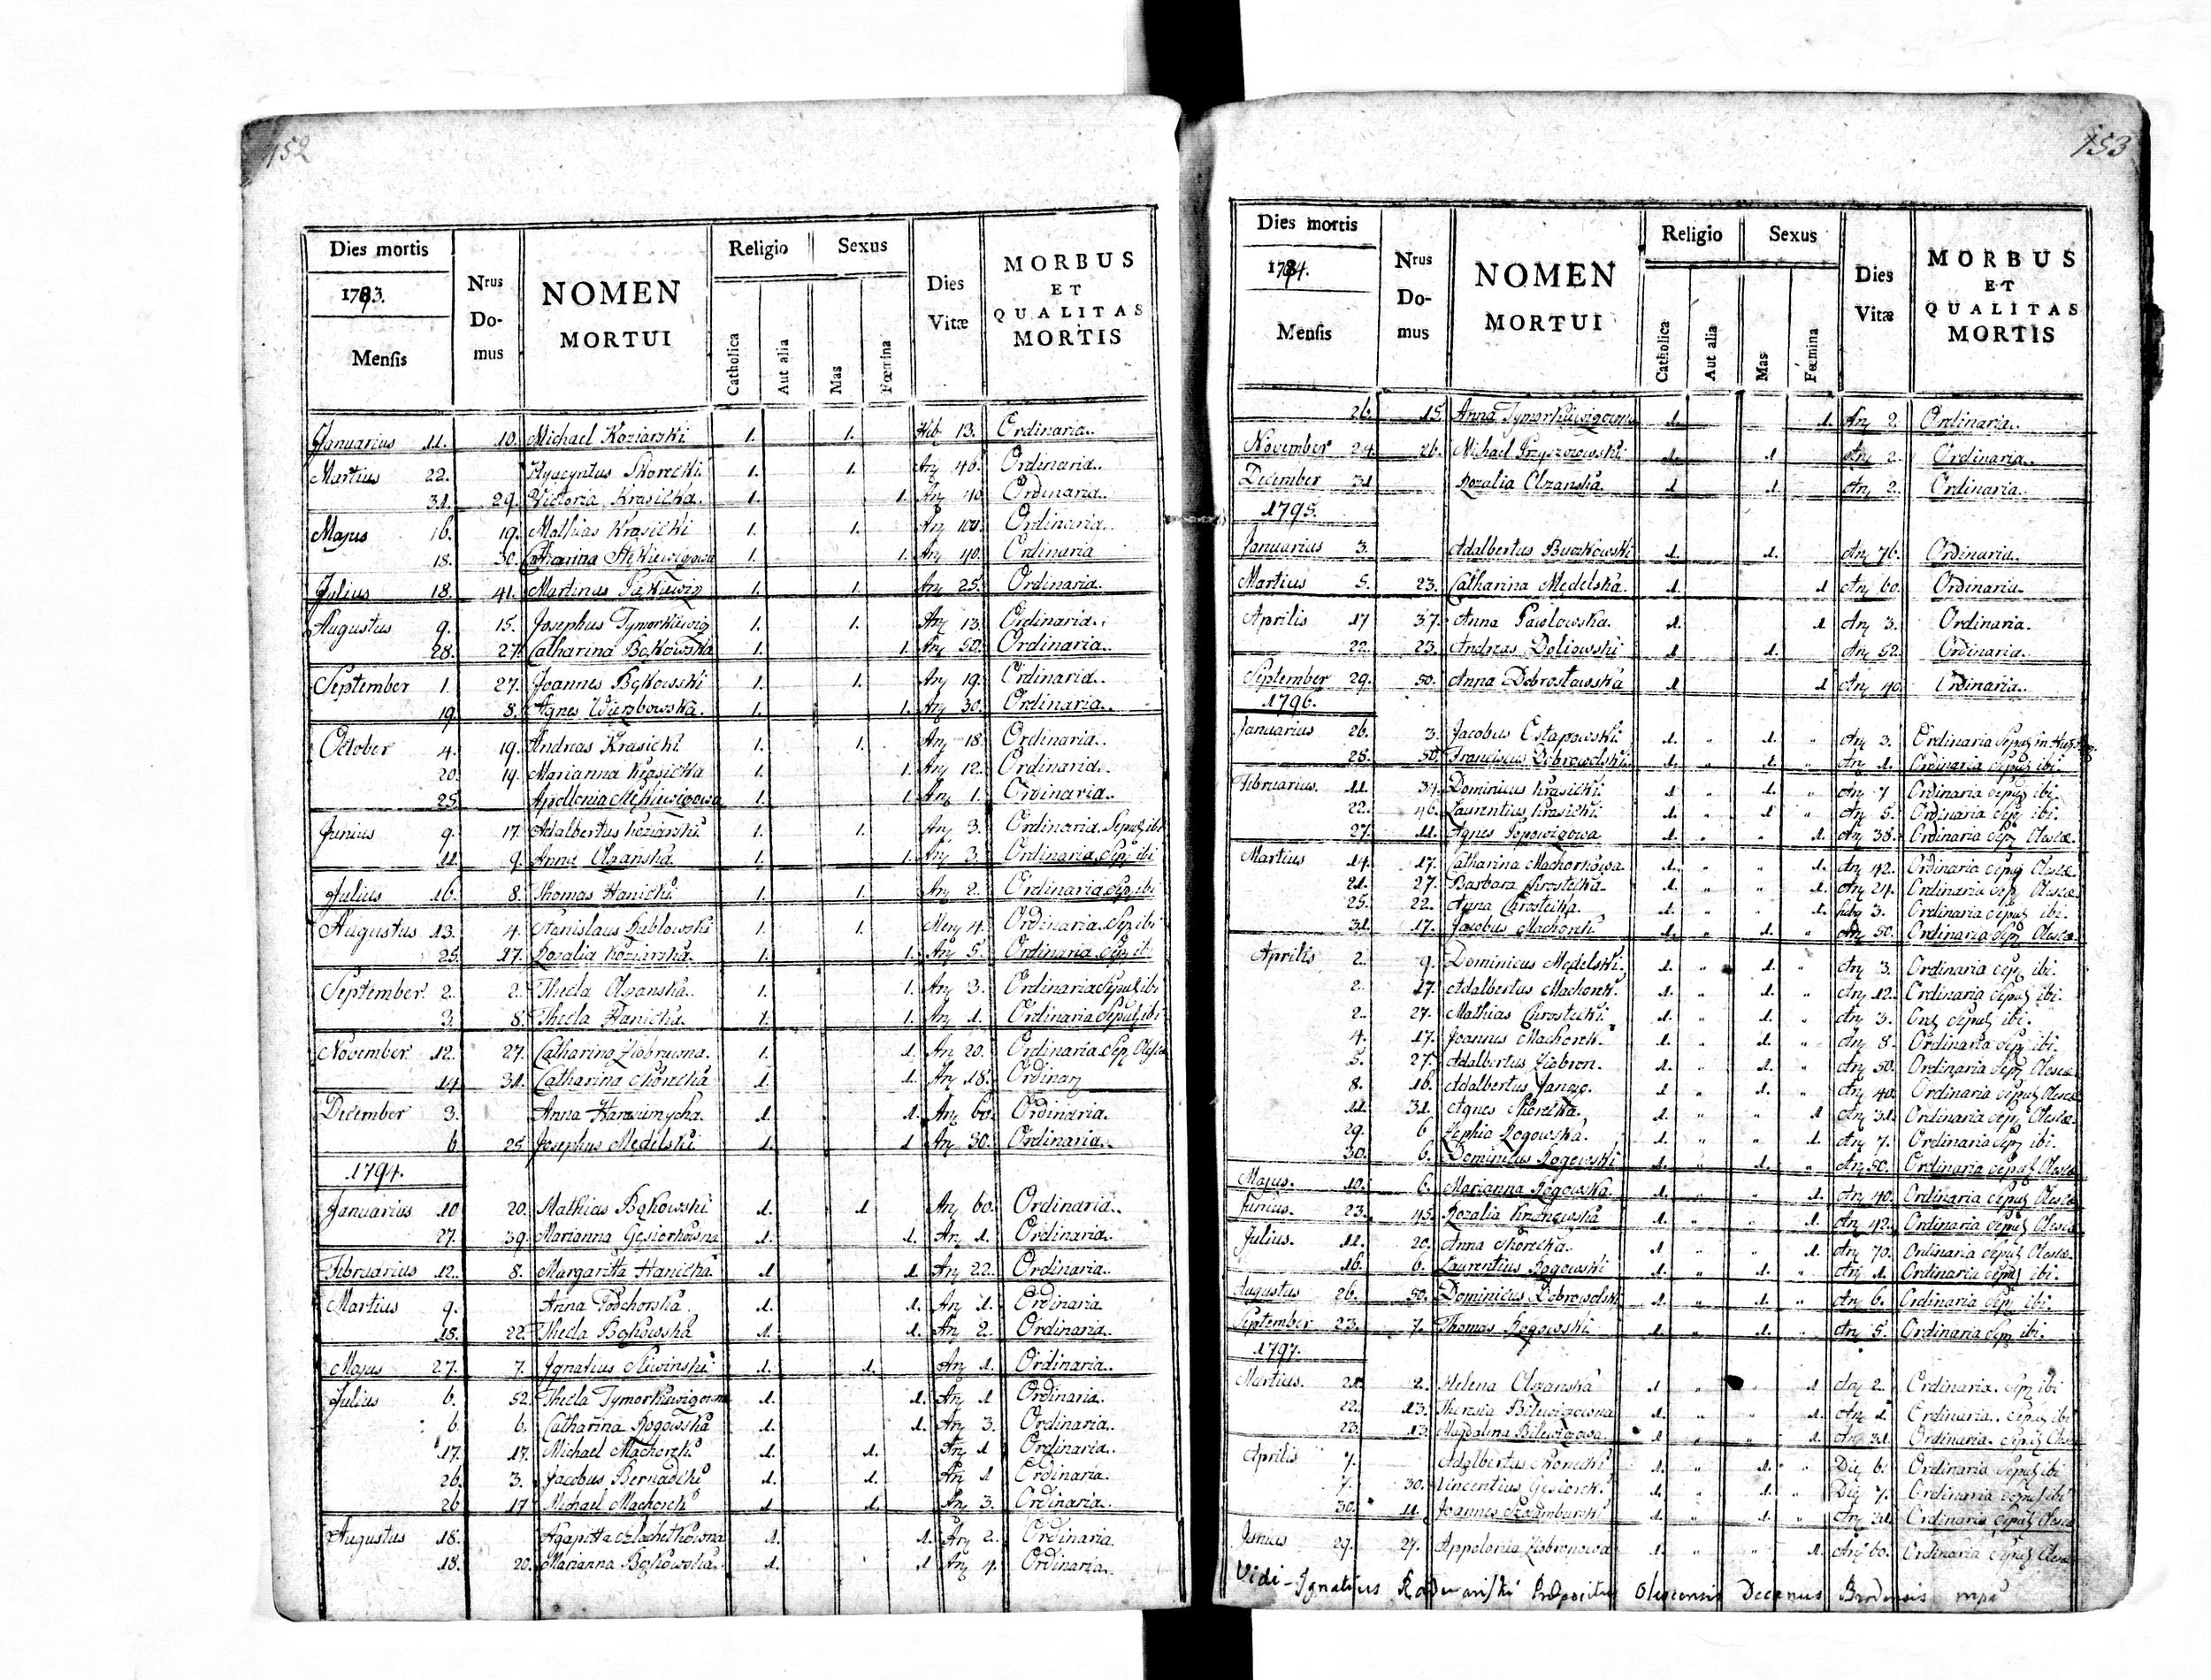 152
Dies mortis
1793.
Menſis
Nrus
Do-
mus
NOMEN
MORTUI
Religio
Catholica
Aut alia
Sexus
Mas
Fœmina
Dies
Vitæ
MORBUS
ET
QUALITAS
MORTIS
Januarius 11. 10. Michael Koziarski 1. 1. Heb. 13. Ordinaria.
Martius 22. Hyacyntus Skorecki 1. 1. Anӡ 46. Ordinaria.
31. 29. Victoria Krasicka. 1. 1. Anӡ 40. Ordinaria.
Majus 16. 19. Mathias Krasicki 1. 1. Anӡ 100. Ordinaria.
18. 30. Catharina 1. 1. Anӡ 40. Ordinaria
Julius 18. 41. Martinus 1. 1. Anӡ 25. Ordinaria.
Augustus 9. 15. Josephus Tymorkiewiz 1. 1. Anӡ 13. Ordinaria.
28. 27. Catharina Bąkowska 1. 1. Anӡ 50. Ordinaria.
September 1. 27. Joannes Bąkowski 1. 1. Anӡ 19. Ordinaria.
19. 8. Agnes Wierzbowska. 1. 1. Anӡ 30. Ordinaria.
October 4. 19. Andreas Krasicki 1. 1. Anӡ 18. Ordinaria.
20. 19. Marianna Krasicka 1. 1. Anӡ 12. Ordinaria.
25. Apollonia 1. 1. Anӡ 1. Ordinaria.
Junius 9. 17. Adalbertus Koziarski 1. 1. Anӡ 3. Ordinaria. Sepulӡ ibi
11. 9. Anna Olzanska 1. 1. Anӡ 3. Ordinaria. Sepӡ ibi
Julius 16. 8. Thomas Hanicki. 1. 1. Anӡ 2. Ordinaria. Sepӡ ibi
Augustus 13. 4. Stanislaus Dublowski 1. 1. Menӡ 4. Ordinaria. Sepӡ ibi
25. 17. Rozalia Koziarska. 1. 1. Anӡ 5. Ordinaria. Sepӡ ibi
September. 2. 2. Thecla Olzanska. 1. 1. Anӡ 3. Ordinaria Sepulӡ ibi
3. 8. Thecla Hanicka. 1. 1. Anӡ 1. Ordinaria Sepulӡ ibi
November 12. 27. Catharina Ziobruwna. 1. 1. An 20. Ordinaria. Sepӡ
14. 31. Catharina Skorecka 1. 1. Anӡ 18. Ordinarӡ
December 3. Anna Harasimycha. 1. 1. Anӡ 60. Ordinaria.
6. 25. Josephus Medelski 1. 1. Anӡ 30. Ordinaria.
1794.
Januarius 10 20. Mathias Bąkowski 1. 1 Anӡ 60. Ordinaria.
27. 39. Marianna Gęsiorkowna 1. 1. Anӡ 1. Ordinaria.
Februarius 12. 8. Margaritta Hanicka 1 1. Anӡ 22. Ordinaria.
Martius 9. Anna Podchorska. 1. 1. Anӡ 1. Ordinaria
18. 22. Thecla Bąkowska 1. 1. Anӡ 2. Ordinaria.
Majus 27. 7. Ignatius Sliwinski 1. 1. Anӡ 1. Ordinaria.
Julius 6. 52. Thecla 1. 1. Anӡ 1 Ordinaria.
6. 6. Catharina Rogowska 1. 1. Anӡ 3. Ordinaria.
17. 17. Michael Machorek 1. 1. Anӡ 1 Ordinaria.
26. 3. Jacobus Bernadcki 1. 1. An 1 Ordinaria.
26 17 Michael Machorek 1 1. Anӡ 3. Ordinaria.
Augustus 18. Agapitta Szlachetkowna 1. 1. Anӡ 2. Ordinaria.
18. 20. Marianna Bąkowska. 1. 1 Anӡ 4. Ordinaria.
153
Dies mortis
1794.
Menſis
Nrus
Do-
mus
NOMEN
MORTUI
Religio
Catholica
Aut alia
Sexus
Mas
Fæmina
Dies
Vitæ
MORBUS
ET
QUALITAS
MORTIS
26. 15. Anna 1. 1. Anӡ 2. Ordinaria.
November 24. 26. Michael 1. 1 Anӡ 2. Ordinaria.
December 31 Rozalia Olzanska. 1 1. Anӡ 2. Ordinaria.
1795.
Januarius 3. Adalbertus Buczkowski 1. 1. Anӡ 76. Ordinaria.
Martius 5. 23. Catharina Medelska. 1. 1 Anӡ 60. Ordinaria.
Aprilis 17 37. Anna Pawlowska. 1. 1 Anӡ 3. Ordinaria.
22. 23. Andreas Doliowski 1 1. Anӡ 52. Ordinaria.
September 29. 50. Anna Dobrostawska 1 1 Anӡ 40. Ordinaria.
1796.
Januarius 26. 3. Jacobus Ostapowski. 1. „ 1. „ Anӡ 3. Ordinaria Sepulӡ in
28. 50. Franciscus Dobrowolski. 1. „ 1. „ Anӡ 1. Ordinaria Sepulӡ ibi.
Februarius. 11. 34. Dominicus Krasicki 1 „ 1. „ Anӡ 7 Ordinaria Sepulӡ ibi
22. 46. Laurentius Krasicki. 1. „ 1 „ Anӡ 5. Ordinaria Sepӡ ibi.
27. 11. Agnes Popowizowa 1. „ „ 1. Anӡ 38. Ordinaria Sepӡ Olescæ.
Martius 14. 17. Catharina Machorkowa. 1. „ „ 1. Anӡ 42. Ordinaria Sepulӡ Olescæ.
21. 27. Barbara Chrostecka. 1. „ „ 1. Anӡ 24. Ordinaria Sepӡ Olescæ
25. 22. Anna Chrostecka. 1. „ „ 1. hebӡ 3. Ordinaria Sepulӡ ibi.
31. 17. Jacobus Machorek 1. „ 1. „ Anӡ 50. Ordinaria Sepӡ Olescæ.
Aprilis 2. 9. Dominicus Medelski. 1. „ 1. „ Anӡ 3. Ordinaria Sepӡ ibi.
2. 17 Adalbertus Machorek. 1. „ 1. „ Anӡ 12. Ordinaria Sepulӡ ibi.
2. 27. Mathias Chrostecki 1. „ 1. „ Anӡ 3. Orđ Sepulӡ ibi.
4. 17. Joannes Machorek. 1. „ 1. „ Anӡ 8. Ordinaria Sepӡ ibi.
5. 27. Adalbertus Ziobron. 1. „ 1. „ Anӡ 50. Ordinaria Sepӡ Olescæ
8. 16. Adalbertus 1 „ 1. „ Anӡ 40. Ordinaria Sepulӡ Olescæ
11. 31. Agnes Skorecka. 1. „ „ 1 Anӡ 31. Ordinaria Sepӡ Olescæ.
29. 6 Zophia Rogowska. 1. „ „ 1. Anӡ 7. Ordinaria Sepӡ ibi.
30. 6. Dominicus Rogowski 1. „ 1. „ Anӡ 50. Ordinaria Sepulӡ Olescæ
Majus. 10. 6. Marianna Rogowska. 1. „ „ 1. Anӡ 40. Ordinaria Sepulӡ Olescæ
Junius. 23. 45. Rozalia Krzanowska 1. „ „ 1. Anӡ 42. Ordinaria Sepulӡ Olescæ
Julius. 11. 20. Anna Skorecka. 1 „ „ 1. Anӡ 70. Ordinaria Sepulӡ Olescæ.
16. 6. Laurentius Rogowski 1. „ 1. „ Anӡ 1. Ordinaria Sepulӡ ibi.
Augustus 26. 50. Dominicus Dobrowolski 1. „ 1. „ Anӡ 6. Ordinaria Sepӡ ibi.
September 23. 7. Thomas Rogowski 1. „ 1. „ Anӡ 5. Ordinaria Sepӡ ibi.
1797.
Martius. 21. 2. Helena Olszanska 1 „ „ 1 Anӡ 2. Ordinaria. Sepӡ ibi
22. 13. Theresia Bilewizowna 1. „ „ 1. Anӡ 1. Ordinaria. Sepulӡ ibi
23. 13. Magdalena Bilewizowa. 1 „ „ 1. Anӡ 31. Ordinaria. Sepulӡ Olescæ
Aprilis 7. Adalbertus Skorecki 1. „ 1. „ Dieӡ 6. Ordinaria Sepulӡ ibi
7. 30. Vincentius Gesiorek. 1. „ 1. „ Dieӡ 7. Ordinaria Sepulӡ ibi
30. 11. Joannes Szramburski 1. „ 1. „ Anӡ 31. Ordinaria Sepulӡ Olescæ
Junius 29. 27. Appolonia Ziobronowa 1. „ „ 1. Anӡ 60. Ordinaria Sepulӡ Olescæ
Vidi – Ignatius Præpositus Olescensis Decanus Brodensis mpa